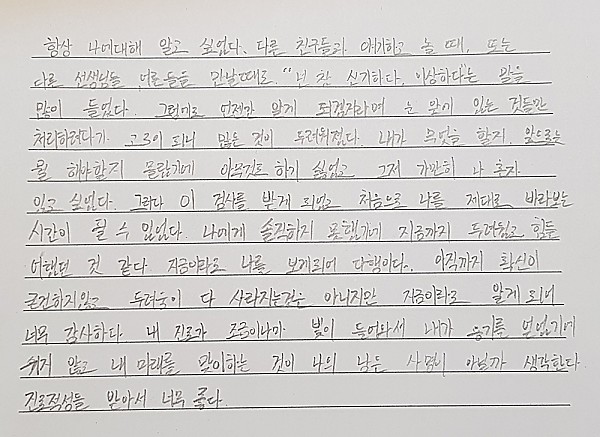 항상 나에대해 알고 싶었다. 다른 친구들과 얘기하고 놀 때, 또는
다른 선생님들 어른들을 만날때때로. "넌 참 신기하다, 이상하다"는 말을
많이 들었다. 그렇기에 언젠간 알게 되겠지라며 눈 앞에 있는 것들만
처리하려다가. 고3이 되니 많은 것이 두려워졌다. 내가 무엇을 할지, 앞으로는
뭘 해야할지 몰랐기에 아무것도 하기 싫었고 그저 가만히 나 혼자
있고 싶었다. 그러다 이 검사를 받게 되었고 처음으로 나를 제대로 바라보는
시간이 될 수 있었다. 나에게 솔직하지 못했기에 지금까지 두려웠고 힘들
어했던 것 같다 지금이라도 나를 보게되어 다행이다. 아직까지 확신이
굳건하지않고 두려움이 다 사라지는것은 아니지만 지금이라도 알게 되어
너무 감사하다. 내 진로가 조금이나마 빛이 들어와서 내가 용기를 얻었기에
쉬지 않고 내 미래를 맞이하는 것이 나의 남은 사명이 아닐까 생각한다
진로적성을 받아서 너무 좋다.